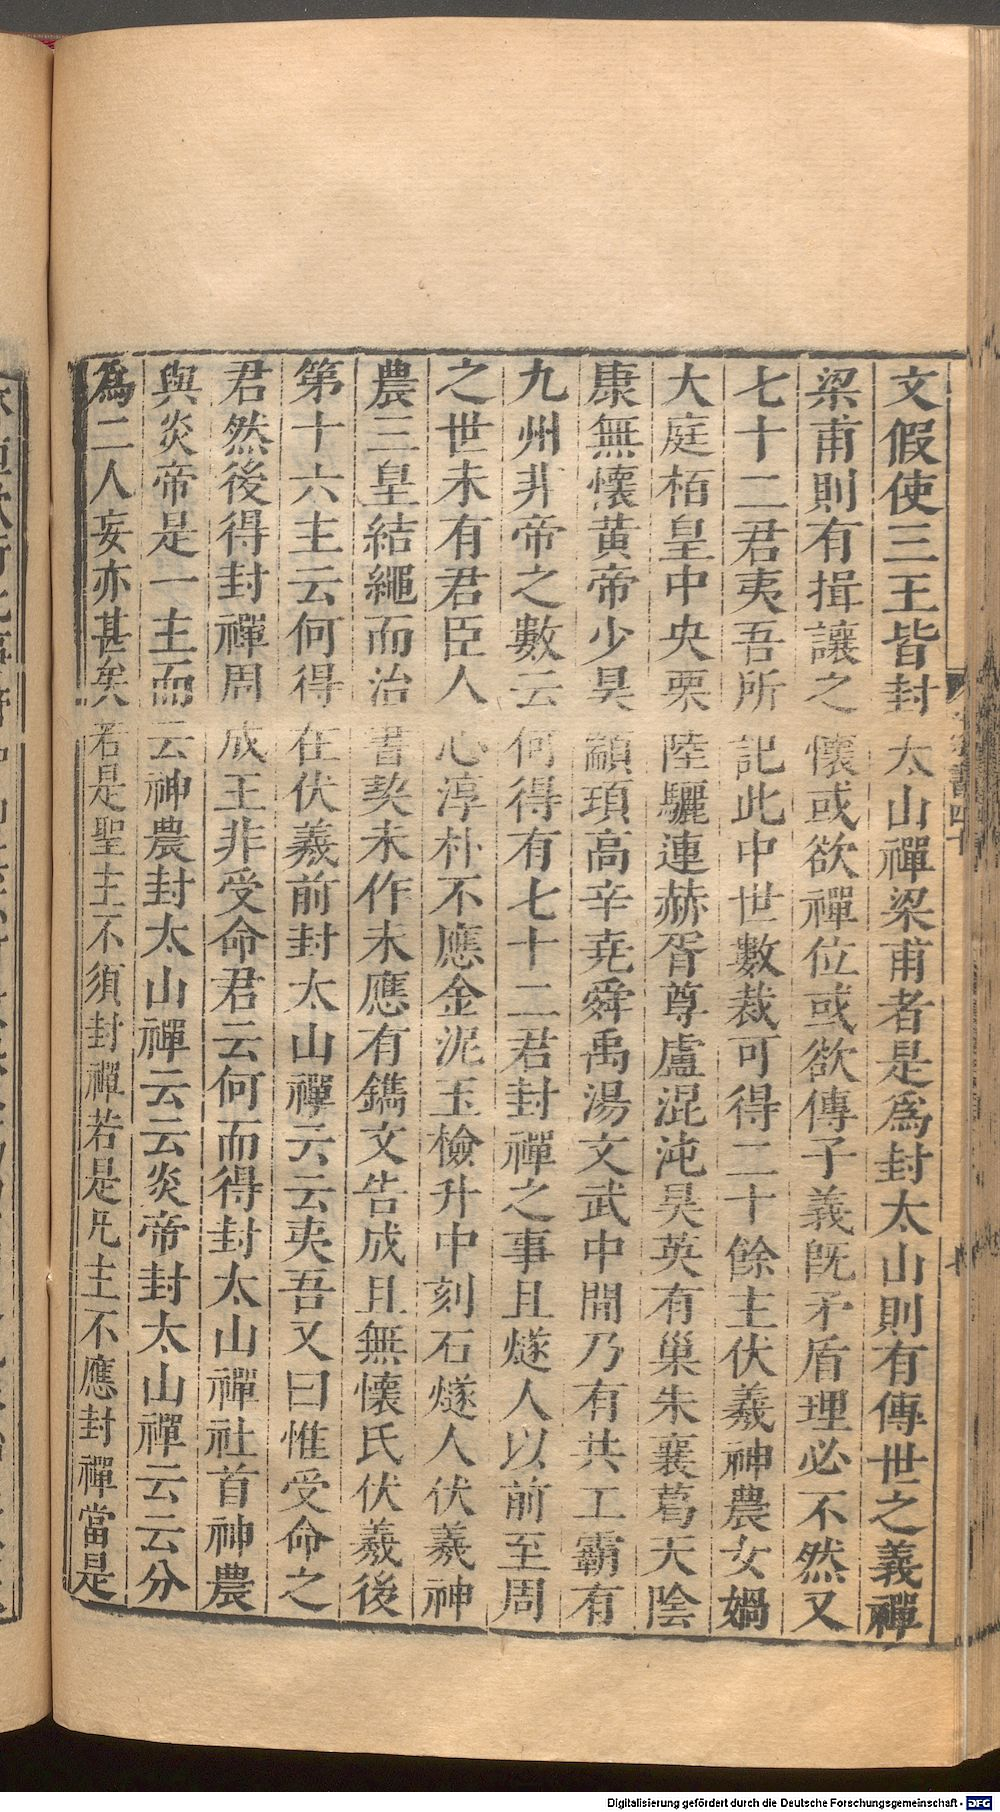 文假使三王皆封太山禪梁甫者是爲封太山則有傳世之義禪
梁甫則有揖讓之懷或欲禪位或欲傳子義旣矛盾理必不然又
七十二君夷吾所記此中世數裁可得二十餘主伏羲神農女媧
大庭栢皇中央栗陸驪連赫胥尊盧混沌昊英有巢朱襄葛天陰
康無懷黃帝少昊顓頊高辛堯舜禹湯文武中間乃有共工霸有
九州非帝之數云何得有七十二君封禪之事且燧人以前至周
之世未有君臣人心淳朴不應金泥玉檢升中刻石燧人伏羲神
農三皇結繩而治書契未作未應有鐫文告成且無懷氏伏羲後
第十六主云何得在伏羲前封太山禪云云夷吾又曰惟受命之
君然後得封禪周成王非受命君云何而得封太山禪社首神農
與炎帝是一主而云神農封太山禪云云炎帝封太山禪云云分
爲二人妄亦甚矣若是聖主不須封禪若是凡主不應封禪當是
書四十
Digitalisierung gefördert durch die Deutsche Forschungsgemeinschaft - DFG